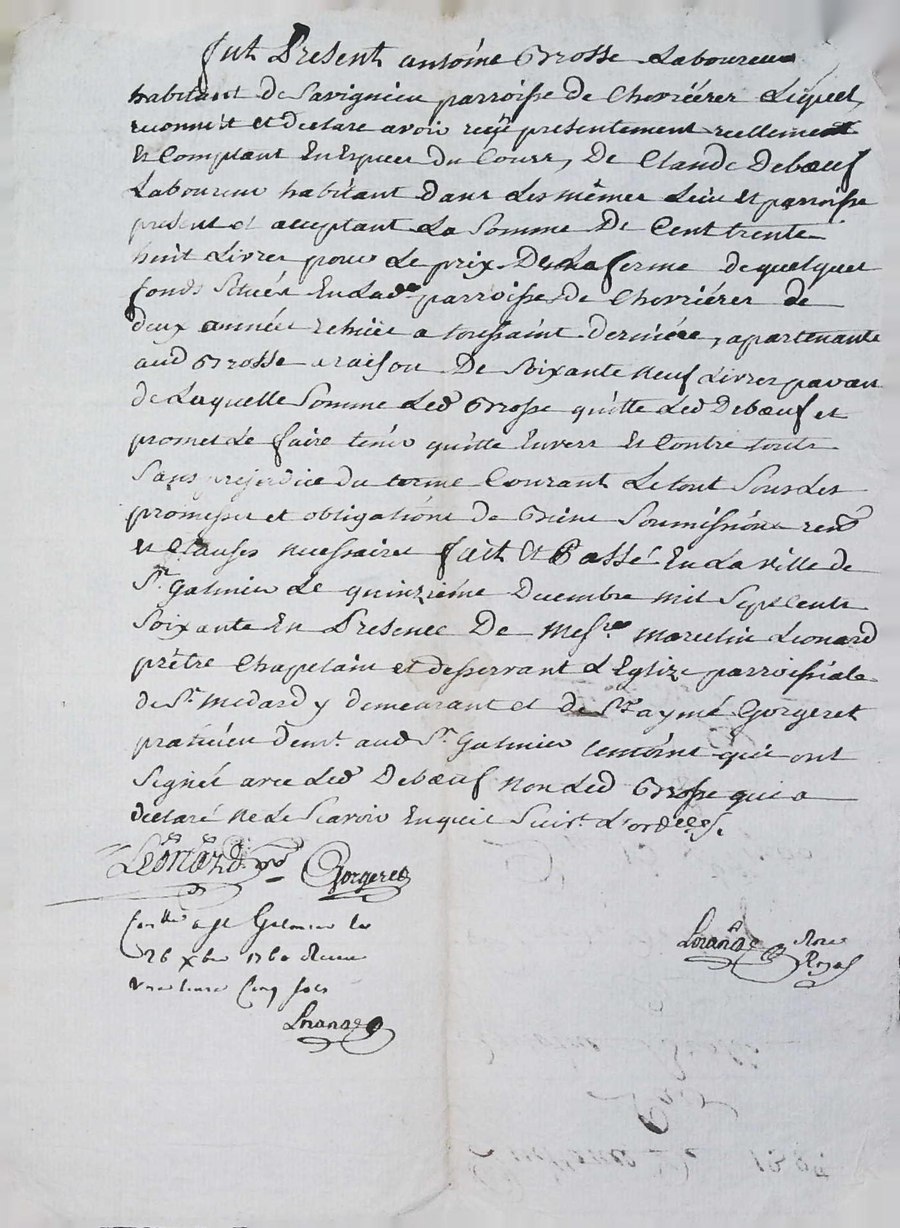 fut Present antoine Grosse Laboureur
habitant De Savignieu parroisse de Chevriérer Lequel
reconnoit et declare avoir reçu presentement reellement
Et Comptant En Especes du Cours, De Claude Debœuf
Laboureur habitant Dans Les mêmes Lieu et parroisse
présent et acceptant La Somme De Cent trente
huit Livres pour Le prix De La ferme de quelques
fonds Situés En Lade parroisse de Chevriérer de
deux année echuës a toussaint Derniére, apartenants
aud Grosse a raison De Soixante Neuf Livres par an
de Laquelle Somme Led Grosse quitte Led Debœuf et
promet Le faire tenir quitte Envers Et Contre touts
Sans prejudice du terme Courant Le tout Sous Les
promesses et obligations de Biens Soumissions renons
et Clauses necessaires fait Et Passé En La ville de
St. Galmier Le quinziéme Decembre mil Sept Cents
Soixante En Presence De Messre Marcelin Leonard
prêtre Chapelain et desservant L'Eglize parroissiale
de St. Medard y demeurant et de Sr. aymé Gorgeret
praticien demt. aud St. Galmier temoins qui ont
Signés avec Led Debœuf Non Led Grosse qui a
declaré Ne Le Scavoir Enquis Suivt. L'ordce.
Leonard Gorgeret
Conllé a St Galmier le
26 xbre 1760 Receu
Cinq sols
Lorange Nore
Royal
Lorange